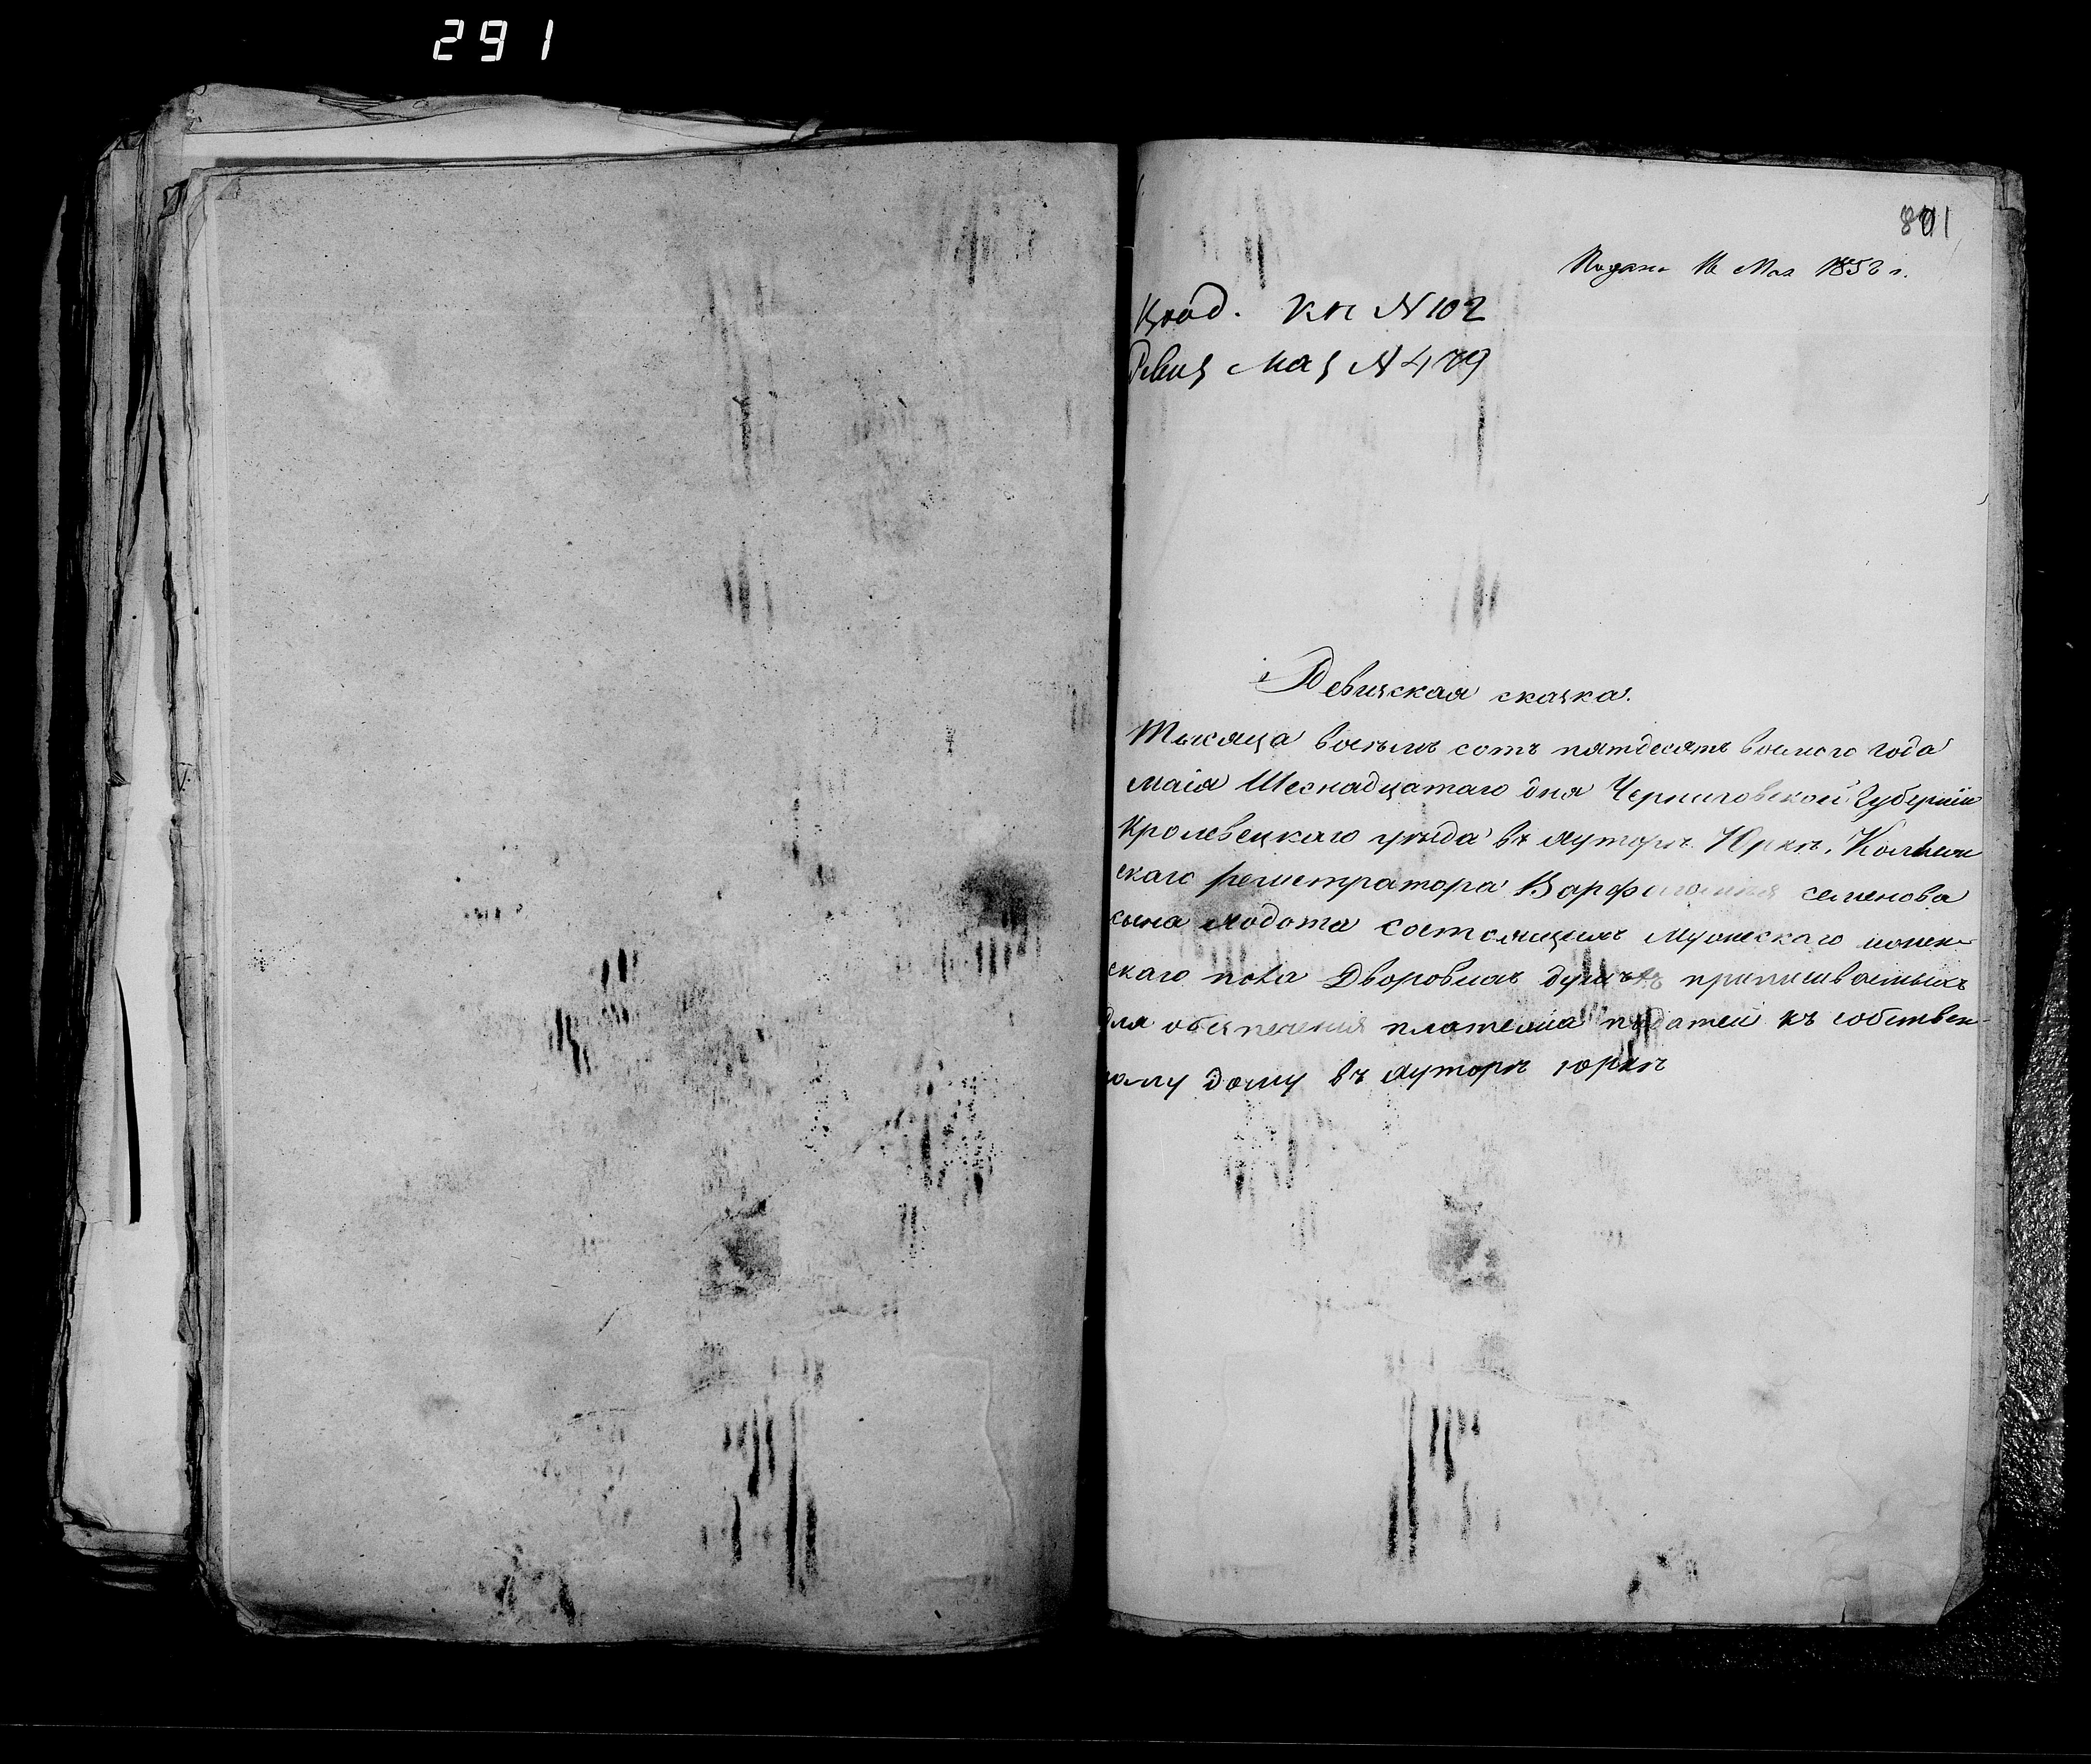 291
Подана 16 Мая 1858 г.
кн N 102
Ревиз N 479
Ревизская сказка.
Тысяча восемь сотъ пятдесятъ восмого года
маія Шеснадцатаго дня Черниговской Губерніи
Кролевецкаго уезда въ хуторѣ Юркѣ, Коллеж
скаго регистратора Варфоломея семенова
сына состоящихъ Мужескаго и женс
скаго пола Дворовыхъ душъ приписываемыхъ
для обезпеченія платежа податей къ собствен-
ному дому въ хуторѣ юркѣ